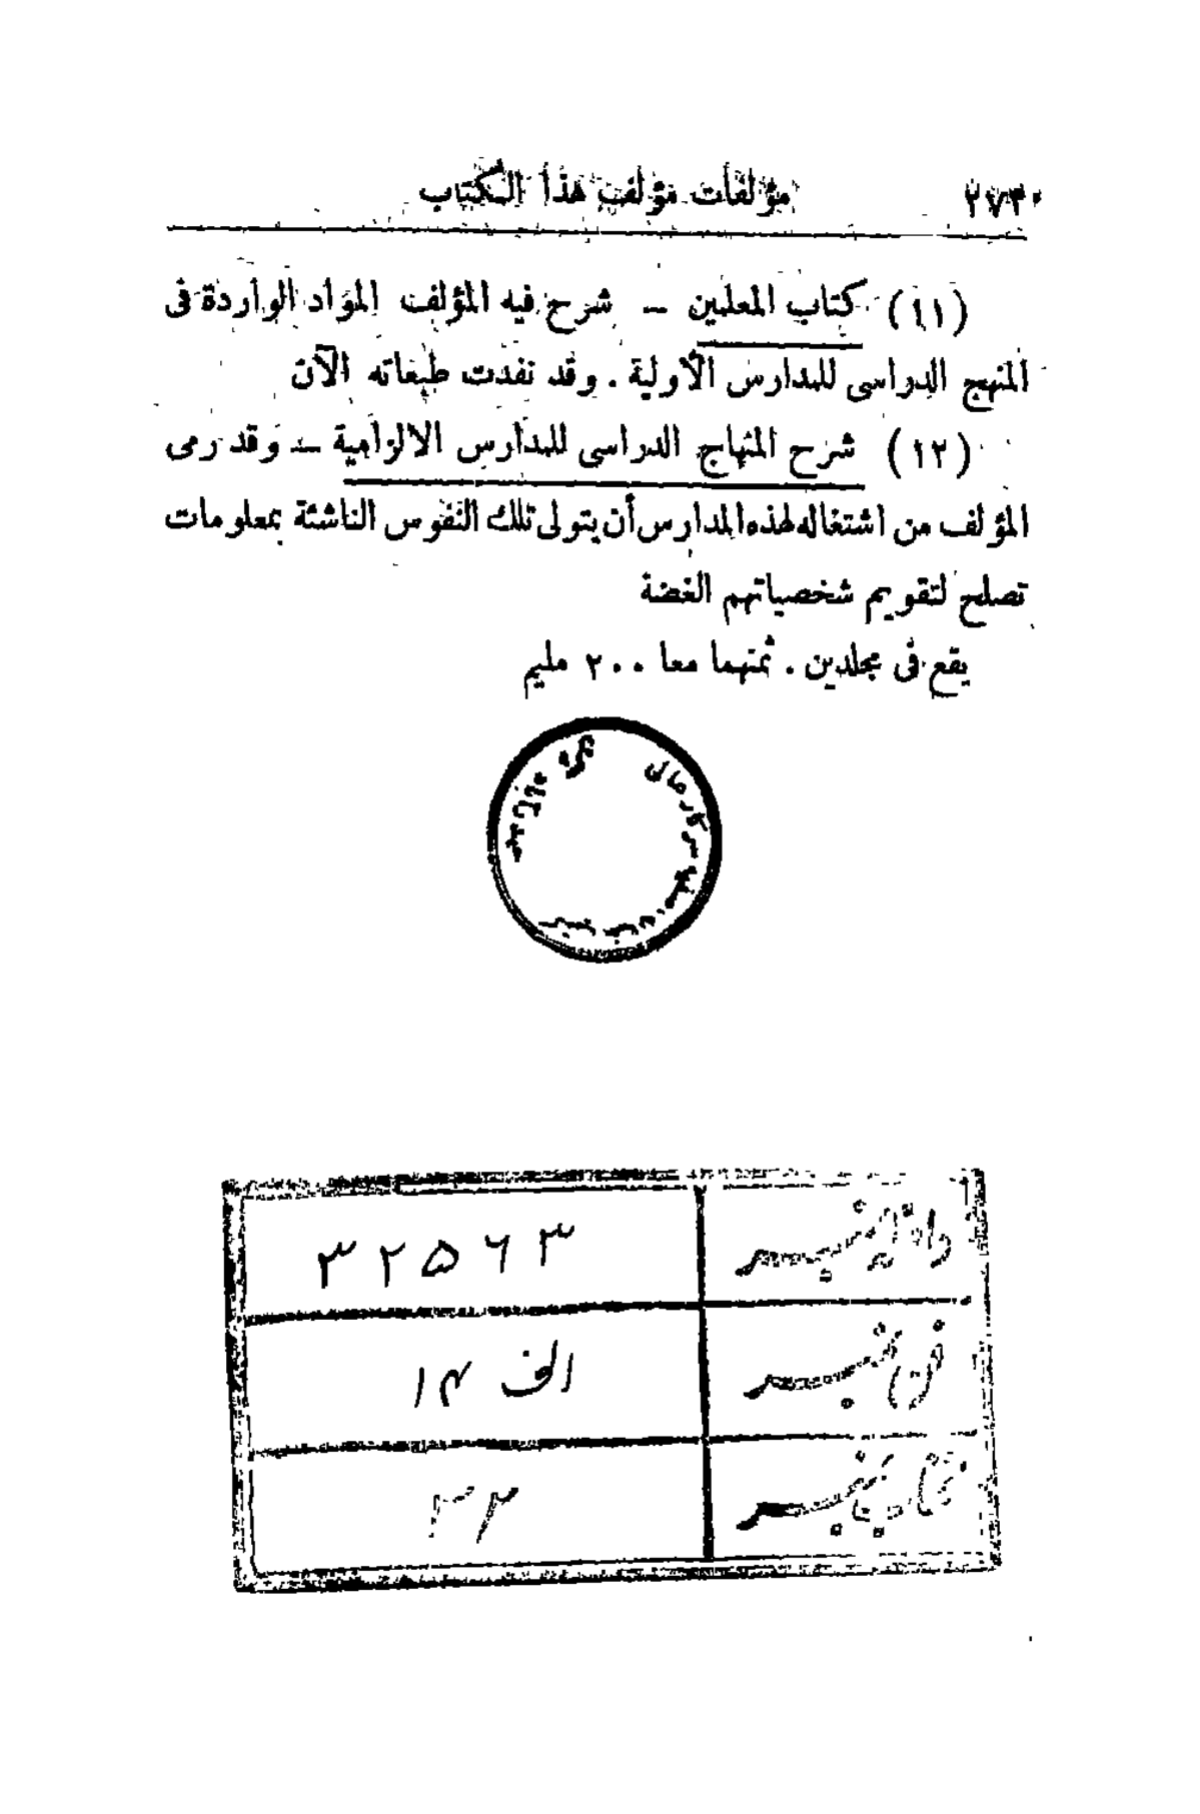 ٢٧٣ مؤلفات مؤلف هذا الكتاب
(١١) كتاب المعلمين — شرح فيه المؤلف المواد الواردة فى
المنهج الدراسى للمدارس الأولية . وقد نفدت طبعاته الآن
(١٢) شرح المنهاج الدراسى للمدارس الالزامية — وقد رمى
المؤلف من اشتغاله لهذه المدارس أن يتولى تلك النفوس الناشئة بمعلومات
تصلح لتقويم شخصياتهم الغضة
يقع فى مجلدين . ثمنهما معا ٢٠٠ مليم
سركار عالى
نمبر ۳۲۵۶۳
فن نمبر الف ۱۴
كتاب نمبر